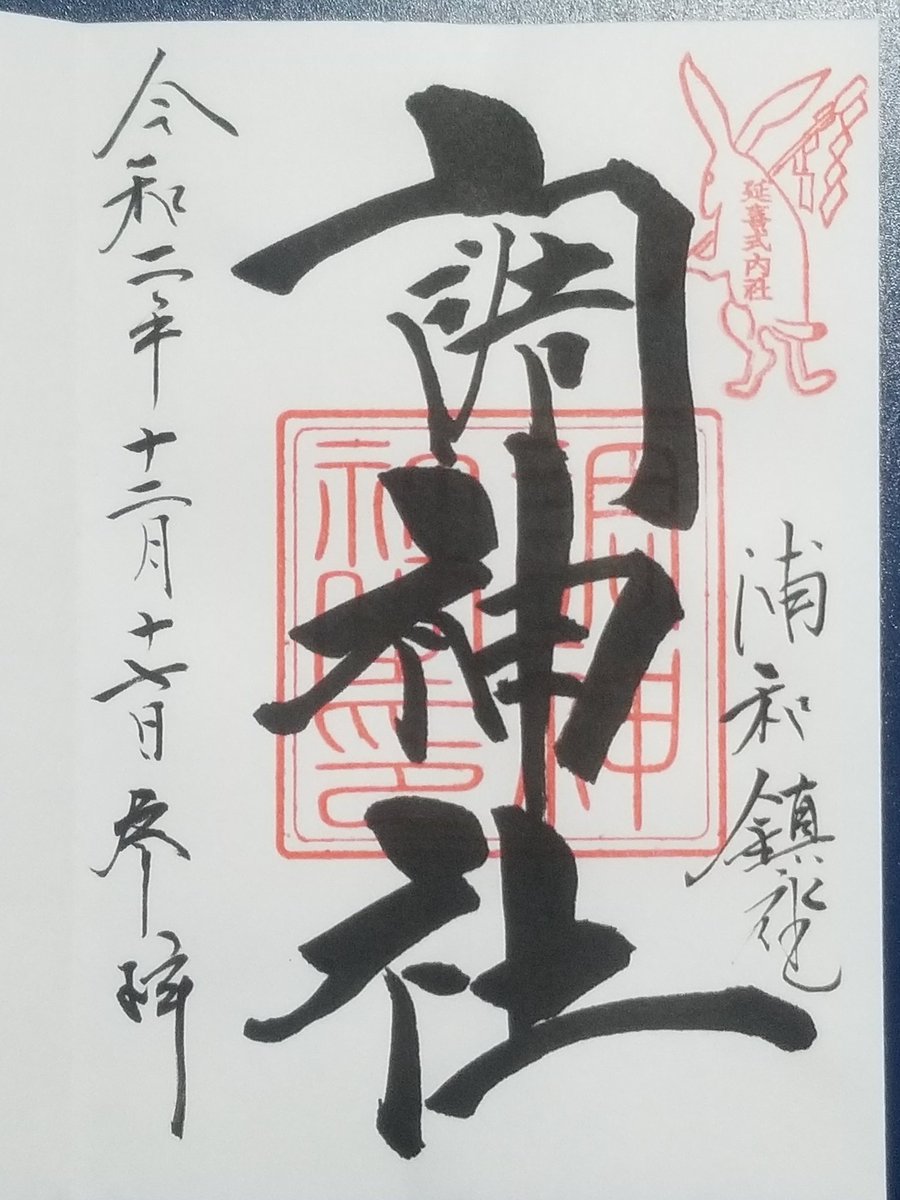 延喜式内社
浦和鎮座
調神社
調神
社璽印
令和二年十二月十七日参拝